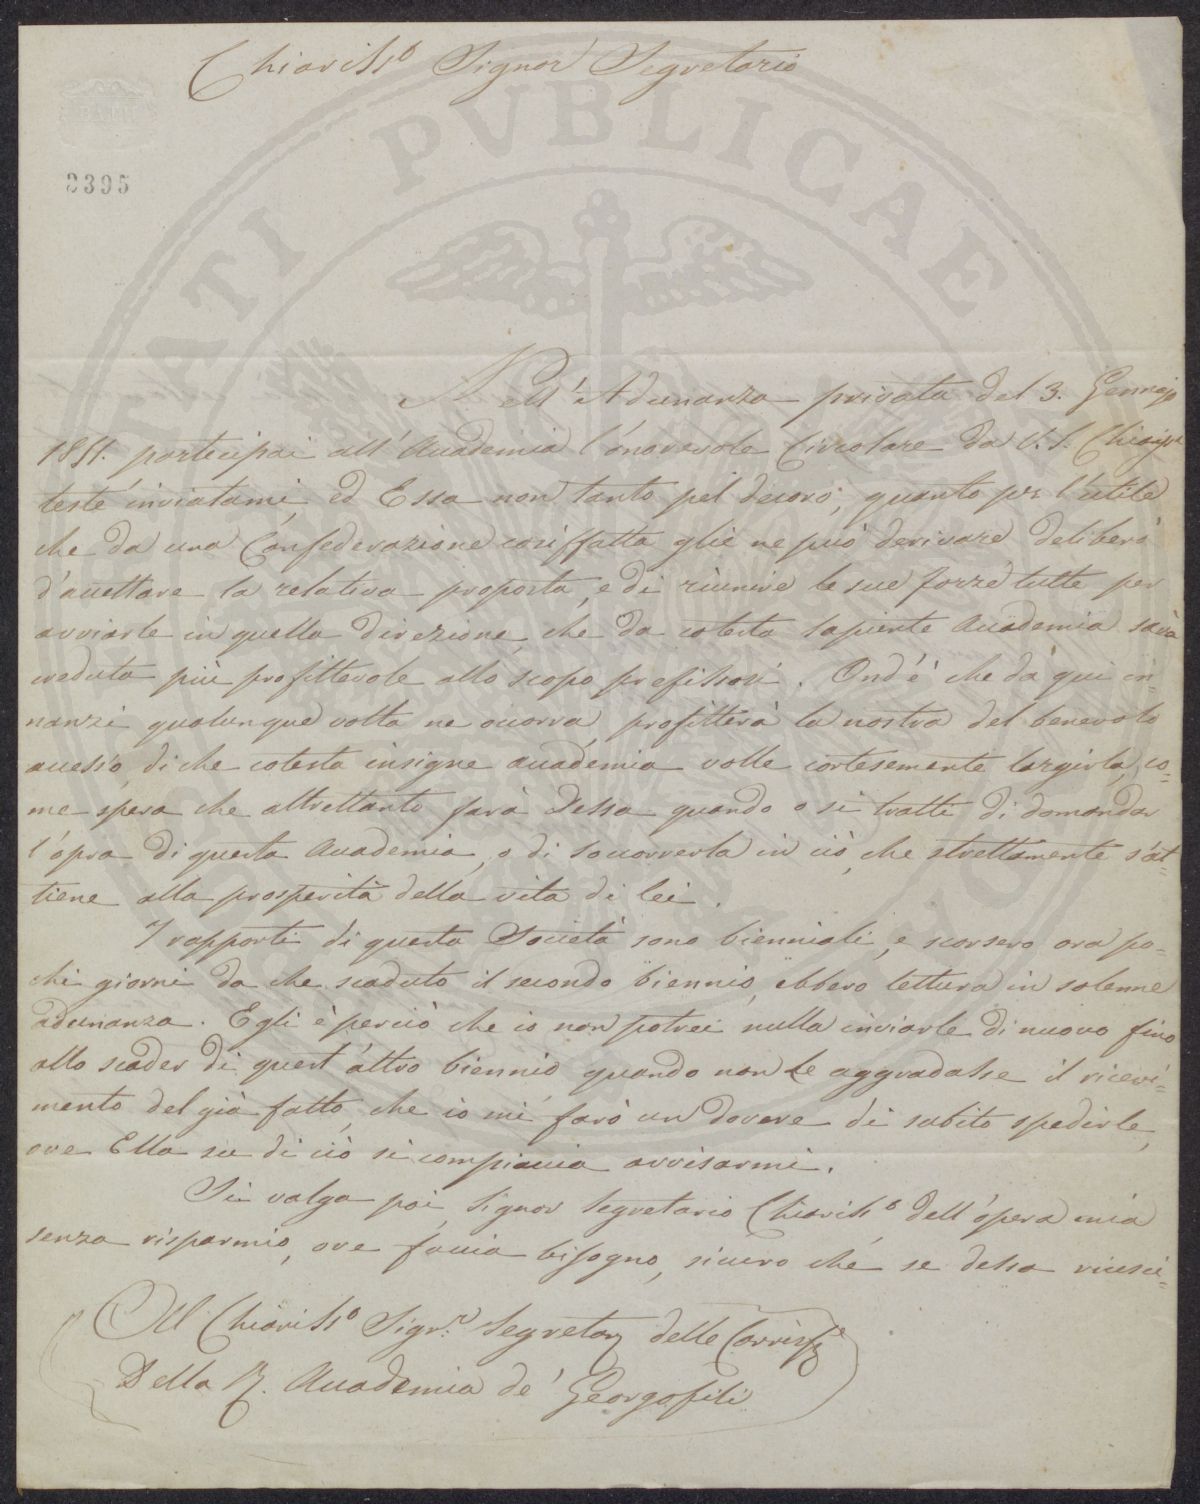 Chiariss.º Signor Segretario
PROSPERITATI PVBLICAE
2395
Nell'Adunanza privata del 3. Gennajo
partecipai all'Accademia l'onorevole Circolare da V. S.
testè inviatami, ed Essa non tanto pel decoro, quanto per l'utile
che da una Confederazione così fatta glie ne può derivare deliberò
d'accettare la relativa proposta, e di riunire le sue forze tutte per
avviarle in quella direzione, che da cotesta sapiente Accademia sarà
creduta più profittevole allo scopo prefissosi. Ond'è che da qui in=
nanzi qualunque volta ne occorra, profitterà la nostra del benevolo
accesso, di che cotesta insigne accademia volle cortesemente largirla, co=
me spera che altrettanto farà dessa quando o si tratti di domandar
l'opra di questa Accademia, o di soccorrerla in ciò, che strettamente s'at=
tiene alla prosperità della vita di lei.
I rapporti di questa Società sono bienniali, e scorsero ora po=
chi giorni da che scaduto il secondo biennio, ebbero lettura in solenne
adunanza. Egli è perciò che io non potrei nulla inviarle di nuovo fino
allo scader di quest'altro biennio, quando non Le aggradasse il ricevi=
mento del già fatto, che io mi farò un dovere di subito spedirle,
ove Ella su di ciò si compiaccia avvisarmi.
Si valga poi, Signor Segretario Chiariss.º, dell'opera mia
senza risparmio, ove faccia bisogno, sicuro che se dessa riesci=
All Chiariss.º Sigr. Segretar delle
Della R. Accademia de' Georgofili